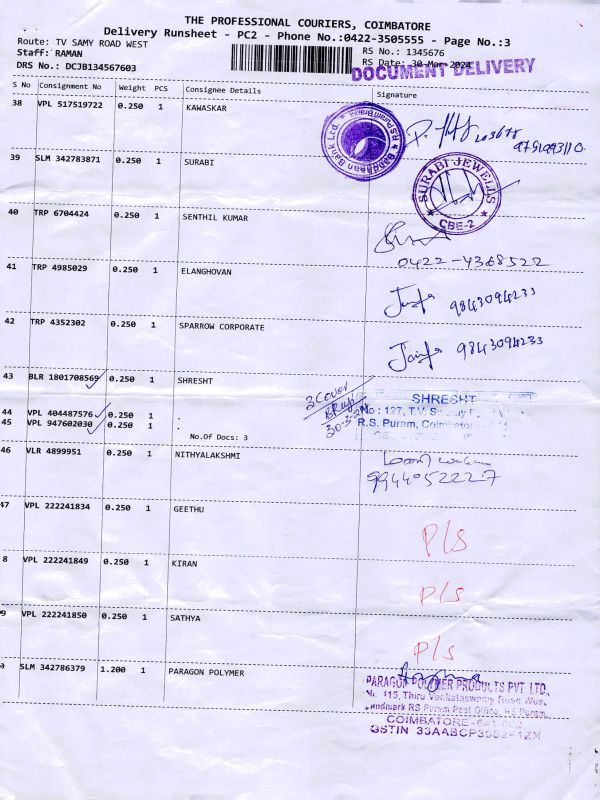 THE PROFESSIONAL COURIERS, COIMBATORE
Delivery Runsheet - PC2 - Phone No.:0422-3505555 - Page No.:3
Route: TV SAMY ROAD WEST RS No.: 1345676
Staff: RAMAN RS Date: 30-Mar-2024
DRS No.: DCJB134567603 DOCUMENT DELIVERY
S No Consignment No Weight PCS Consignee Details Signature
38 VPL 517519722 0.250 1 KAWASKAR
Bandhan Bank Ltd. R.S.Puram Branch
39 SLM 342783871 0.250 1 SURABI
SURABI JEWELLS
CBE-2
40 TRP 6704424 0.250 1 SENTHIL KUMAR
0422-4368522
41 TRP 4985029 0.250 1 ELANGHOVAN
9843094233
42 TRP 4352302 0.250 1 SPARROW CORPORATE
9843094233
43 BLR 1801708569 0.250 1 SHRESHT
3 Cover
30-3-24
SHRESHT
No : 127, T.V.
R.S. Puram, Coimbatore
44 VPL 404487576 0.250 1 .
45 VPL 947602030 0.250 1 .
No.Of Docs: 3
46 VLR 4899951 0.250 1 NITHYALAKSHMI
9944052227
47 VPL 222241834 0.250 1 GEETHU
P/s
8 VPL 222241849 0.250 1 KIRAN
P/s
9 VPL 222241850 0.250 1 SATHYA
P/s
0 SLM 342786379 1.200 1 PARAGON POLYMER
PARAGON POLYMER PRODUCTS PVT LTD.
No. 115, Thiru Venkataswamy Road West,
Landmark RS Puram Post Office, RS Puram,
COIMBATORE-641 002